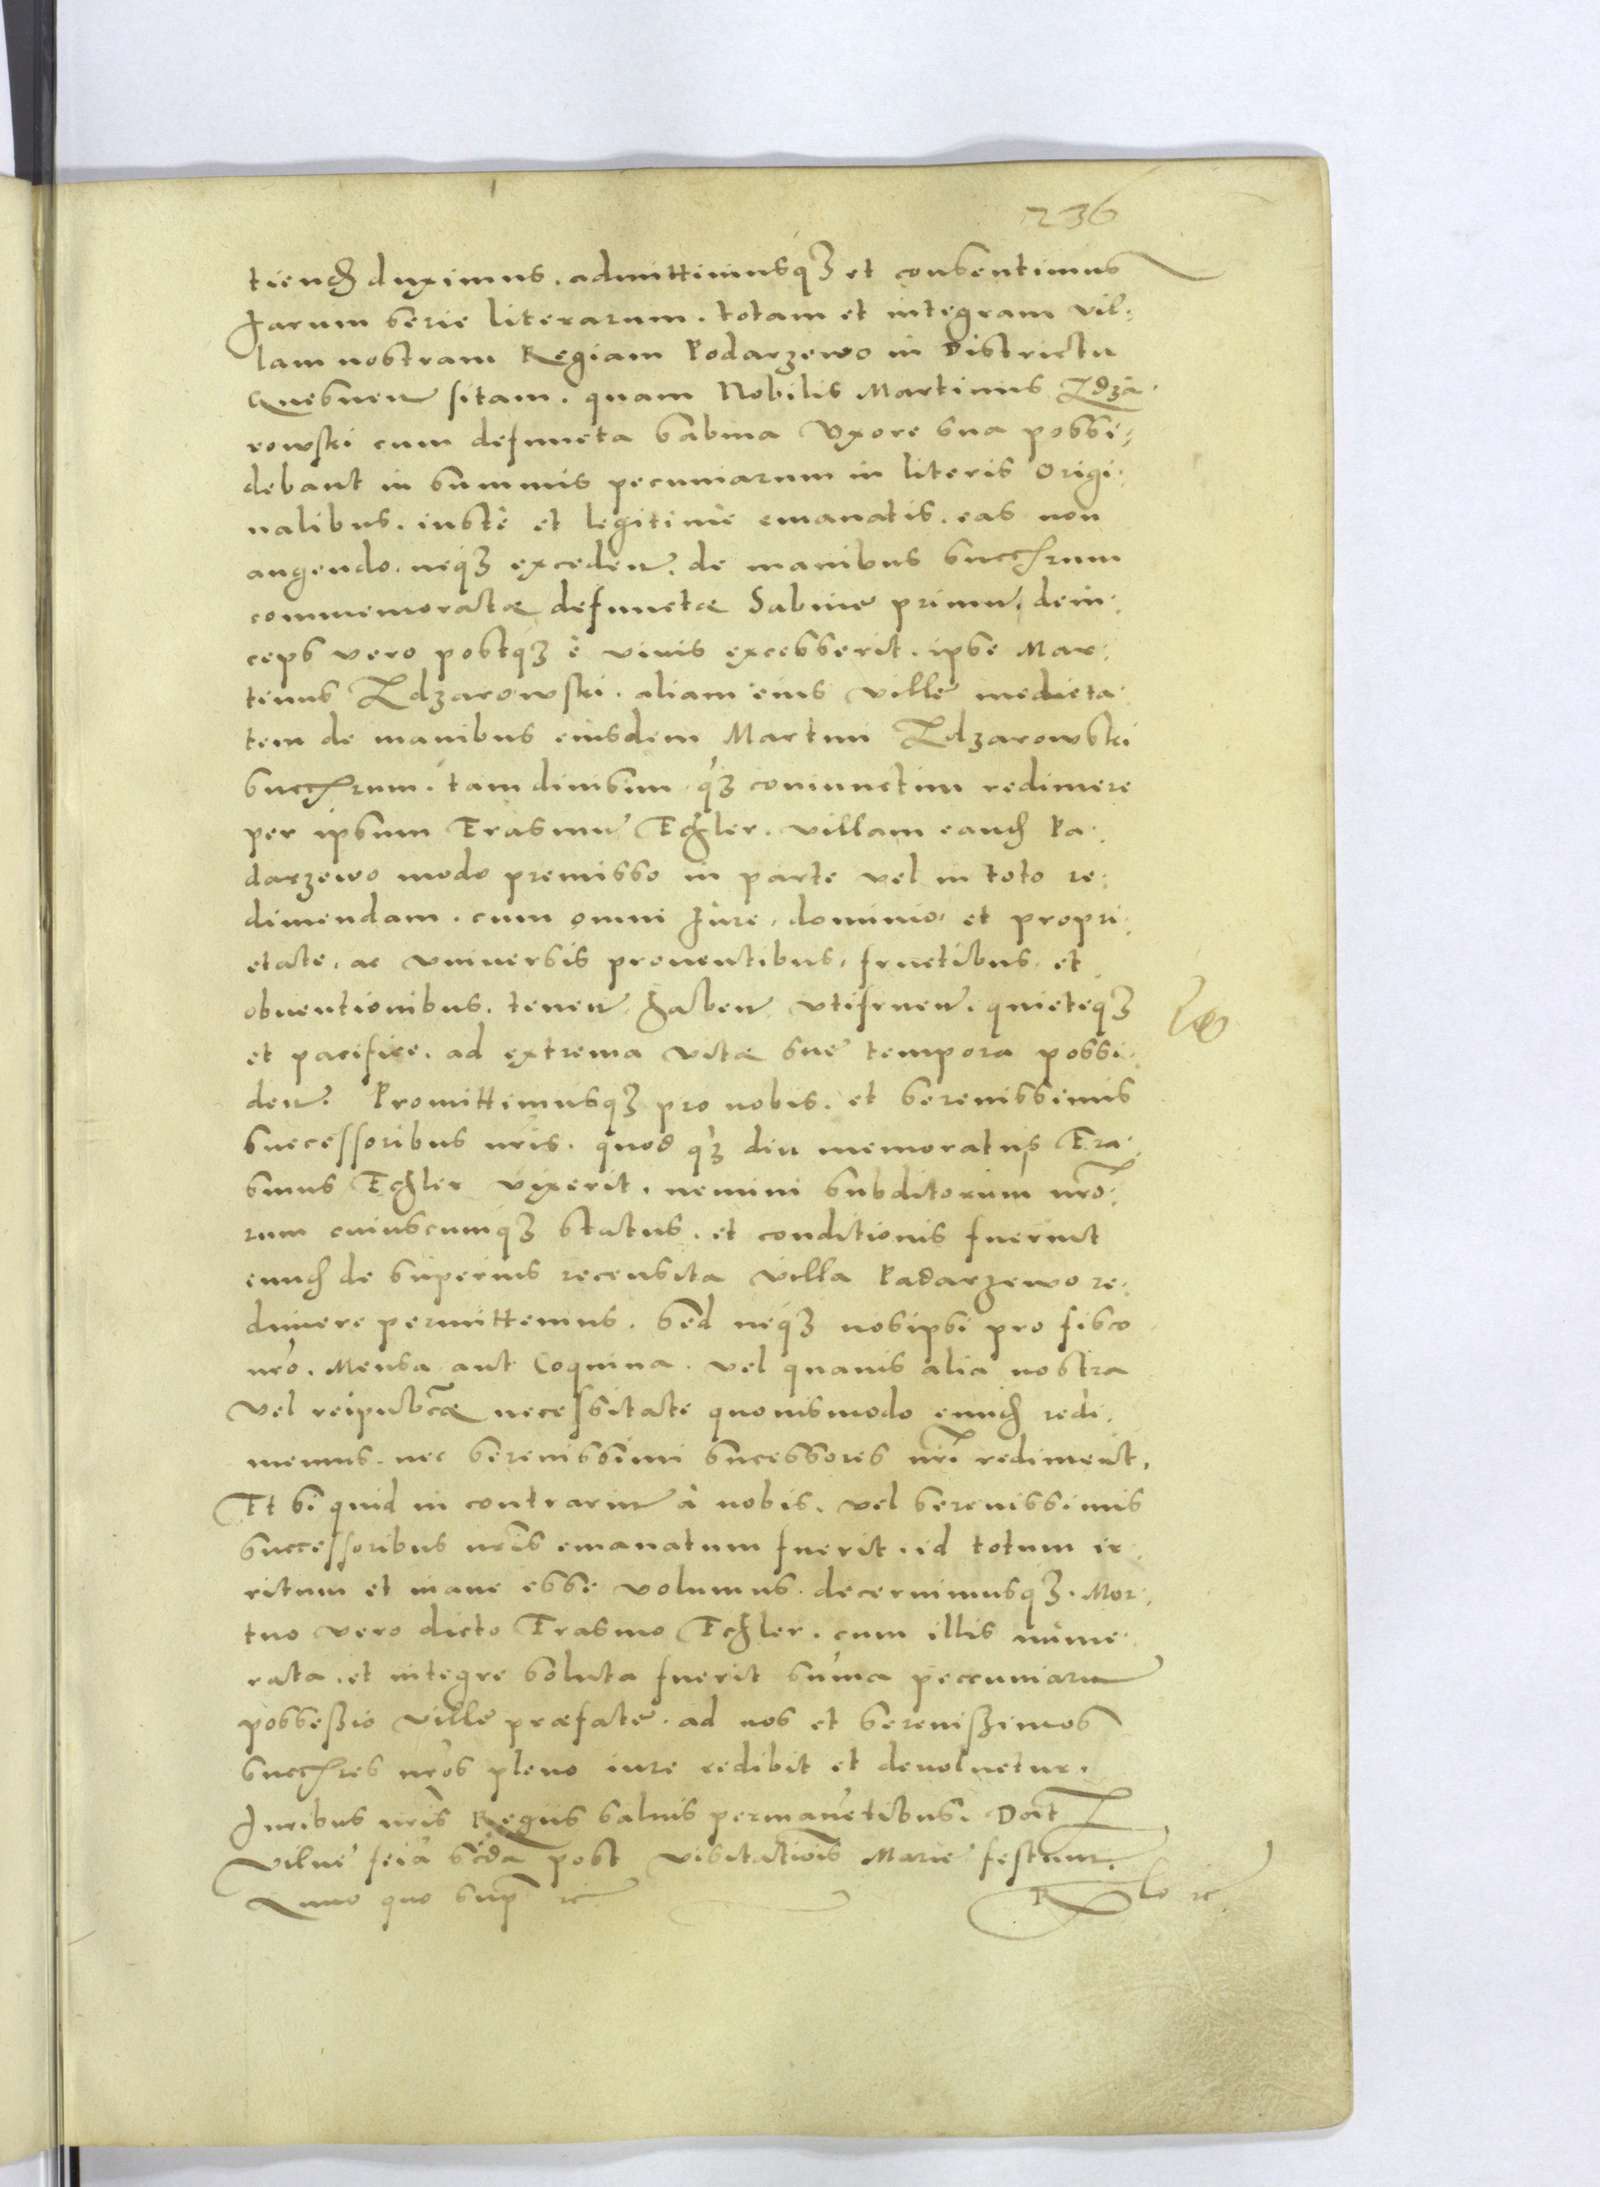 236
tiendum duximus. admittimusq3 et consentimus
harum serie literarum. totam et integram vil-
lam nostram Regiam Podarzewo in Districtu
Gnesnen sitam. quam Nobilis Martinus Zdza-
rowski cum defuncta Sabina Vxore sua possi-
debant in summis pecuniarum in literis origi-
nalibus. iuste et legitime emanatis. eas non
augendo. neq3 exceden. de manibus succrum
commemoratæ defunctæ Sabine primu, dein-
ceps vero postq3 è viuis excesserit. ipse Mar-
tinus Zdzarowski. aliam eius ville medieta-
tem de manibus eiusdem Martini Zdzarowski
succrum. tam diuisim q3 coniunctim redimere
per ipsum Erasmu Echler. villam eand Pa-
darzewo modo premisso in parte vel in toto re-
dimendam. cum omni Jure. dominio et propri-
etate. ac vniuersis prouentibus. fructibus et
obuentionibus. tenen. haben vtifruen. quieteq3
et pacifice. ad extrema vitæ sue tempora possi-
den. Promittimusq3 pro nobis. et serenissimis
successoribus nris. quod q3 diu memoratus Era-
smus Echler vixerit. nemini subditorum nro-
rum cuiuscumq3 status. et conditionis fuerint
eund de superius recensita villa Padarzewo re-
dimere permittemus. Sed neq3 nosipsi pro fisco
nro. Mensa aut Coquina. vel quauis alia nostra
vel reipubcæ necessitate quouismodo eund redi-
memus. nec serenissimi sucessores nri rediment.
Et si quid in contrariu à nobis. vel serenissimis
successoribus nris emanatum fuerit. id totum ir-
ritum et inane esse volumus. decernimusq3. Mor-
tuo vero dicto Erasmo Echler. cum illis nume-
rata. et integre soluta fuerit suma peccuniaru
possessio ville præfate. ad nos et serenissimos
succres nros pleno iure redibit et deuoluetur.
Juribus nris Regiis saluis permanetibus. Dat
Vilne feia scda post visitationis Marie festum.
Anno quo sup rc